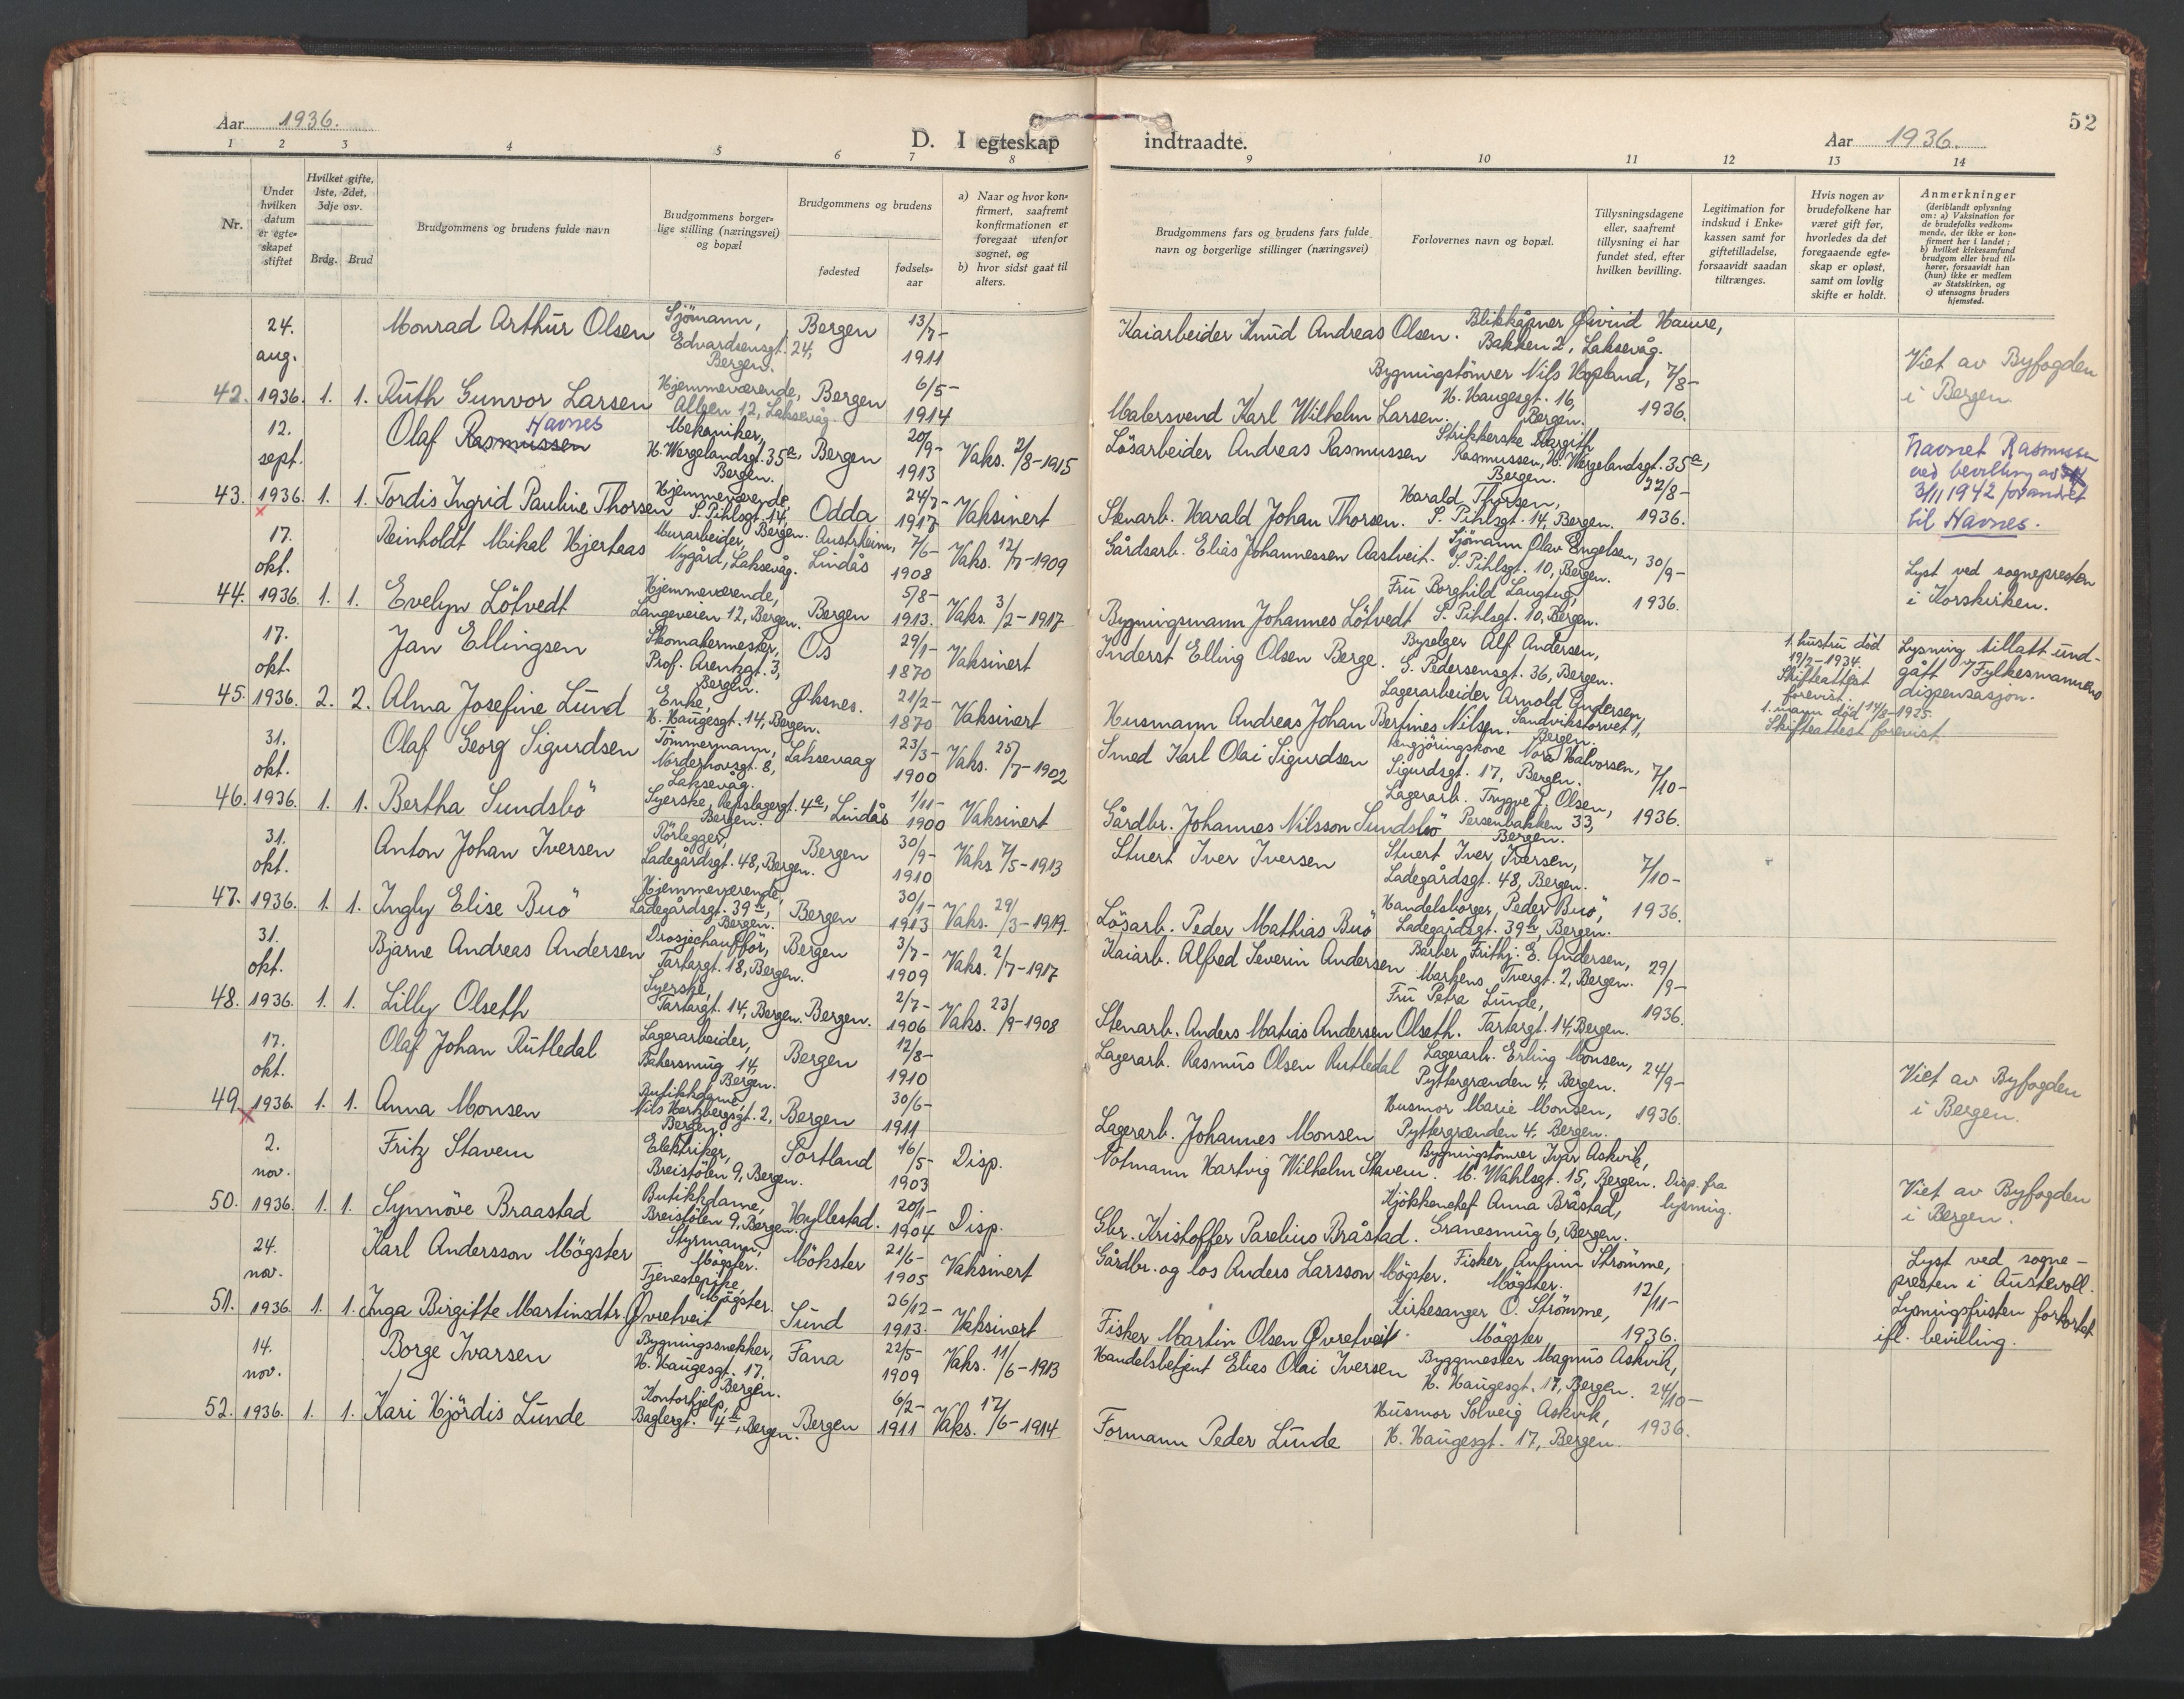 Aar 1936.
D. I egteskap
1 2 3 4 5 6 7 8
Nr.
Under hvilken datum er egteskapet stiftet
Hvilket gifte, 1ste, 2det, 3dje osv.
Brdg. Brud
Brudgommens og brudens fulde navn
Brudgommens borgerlige stilling (næringsvei) og bopæl
Brudgommens og brudens
fødested
fødselsaar
a) Naar og hvor konfirmert, saafremt konfirmationen er foregaat utenfor sognet, og
b) hvor sidst gaat til alters.
24. aug. Monrad Arthur Olsen Sjömann, Edvardsensgt. 24, Bergen. Bergen 13/7- 1911
42. 1936. 1. 1. Ruth Gunvor Larsen Hjemmeværende, Alleen 12, Laksevåg. Bergen 6/5- 1914
12. sept. Olaf Rasmussen Havnes Mekaniker, H. Wergelandsgt. 35a, Bergen. Bergen 20/9- 1913 Vaks. 2/8-1915
43. 1936. 1. 1. Tordis Ingrid Pauline Thorsen Hjemmeværende, S. Pihlsgt. 14, Bergen. Odda 24/7- 1917 Vaksinert
17. okt. Reinholdt Mikal Hjertaas Murarbeider, Nygård, Laksevåg. Austrheim, Lindås 7/6- 1908 Vaks. 12/7-1909
44. 1936. 1. 1. Evelyn Lötvedt Hjemmeværende, Langeveien 12, Bergen. Bergen 5/8- 1913. Vaks. 3/2-1917
17. okt. Jan Ellingsen Skomakermester, Prof. Arentzgt. 3, Bergen. Os 29/1- 1870 Vaksinert
45. 1936. 2. 2. Alma Josefine Lund Enke, H. Haugesgt. 14, Bergen. Øksnes. 21/2- 1870 Vaksinert
31. okt. Olaf Georg Sigurdsen Tömmermann, Norderhovsgt. 8, Laksevåg. Laksevaag 23/3- 1900 Vaks. 25/7-1902
46. 1936. 1. 1. Bertha Sundsbö Syerske, Repslagergt. 4a, Bergen. Lindås 1/11- 1900 Vaksinert
31. okt. Anton Johan Iversen Rörlegger, Ladegårdsgt. 48, Bergen. Bergen 30/9- 1910 Vaks. 7/5-1913
47. 1936. 1. 1. Ingly Elise Buö Hjemmeværende, Ladegårdsgt. 39, Bergen. Bergen 30/1- 1913 Vaks. 29/3-1919.
31. okt. Bjarne Andreas Andersen Drosjechaufför, Tartargt. 18, Bergen. Bergen 3/7- 1909 Vaks. 2/7-1917
48. 1936. 1. 1. Lilly Olseth Syerske, Tartargt. 14, Bergen. Bergen. 2/7- 1906 Vaks. 23/9-1908
17. okt. Olaf Johan Rutledal Lagerarbeider, Bakersmug 14, Bergen. Bergen 12/8- 1910
49. 1936. 1. 1. Anna Monsen Butikkdame, Nils Hertzbergsgt. 2, Bergen. Bergen 30/6- 1911
2. nov. Fritz Stavem Elektriker, Breistölen 9, Bergen. Sortland 16/5- 1903 Disp.
50. 1936. 1. 1. Synnöve Braastad Butikkdame, Breistölen 9, Bergen. Hyllestad. 20/1- 1904 Disp.
24. nov. Karl Andersson Mögster Styrmann, Mögster. Mökster 21/6- 1905 Vaksinert
51. 1936. 1. 1. Inga Birgitte Martinsdtr. Øvretveit Tjenestepike, Mögster. Sund 26/12- 1913. Vaksinert
14. nov. Borge Ivarsen Bygningssnekker, H. Haugesgt. 17, Bergen. Fana 22/5- 1909 Vaks. 11/6-1913
52. 1936. 1. 1. Kari Hjördis Lunde Kontorhjelp, Baglergt. 4, Bergen. Bergen 6/2- 1911 Vaks. 17/6-1914
52
indtraadte.
Aar 1936.
9 10 11 12 13 14
Brudgommens fars og brudens fars fulde navn og borgerlige stillinger (næringsvei)
Forlovernes navn og bopæl.
Tillysningsdagene eller, saafremt tillysning ei har fundet sted, efter hvilken bevilling.
Legitimation for indskud i Enkekassen samt for giftetilladelse, forsaavidt saadan tiltrænges.
Hvis nogen av brudefolkene har været gift før, hvorledes da det foregaaende egteskap er opløst, samt om lovlig skifte er holdt.
Anmerkninger (deriblandt oplysning om: a) Vaksination for de brudefolks vedkommende, der ikke er konfirmert her i landet; b) hvilket kirkesamfund brudgom eller brud tilhører, forsaavidt han (hun) ikke er medlem av Statskirken, og c) utensogns bruders hjemsted.
Kaiarbeider Knud Andreas Olsen. Blikkåpner Øivind Haure, Bakken 2, Laksevåg.
Malersvend Karl Wilhelm Larsen. Bygningstömrer Nils Hopland, H. Haugesgt. 16, Bergen. 7/8- 1936. Viet av Byfogden i Bergen.
Lösarbeider Andreas Rasmussen Strikkerske Margith Rasmussen, H. Wergelandsgt. 35a, Bergen.
Stenarb. Harald Johan Thorsen. Harald Thorsen, S. Pihlsgt. 14, Bergen. 22/8- 1936. Navnet Rasmussen ved bevilling av 3/11 1942 forandret til Havnes.
Gårdsarb. Elias Johannessen Aastveit. Sjömann Olav Engelsen, S. Pihlsgt. 10, Bergen. 30/9-
Bygningsmann Johannes Lötvedt Fru Borghild Langtug, S. Pihlsgt. 10, Bergen. 1936. Lyst ved sognepresten i Korskirken.
Inderst Elling Olsen Berge. Byselger Alf Andersen, S. Pedersensgt. 36, Bergen. 1. hustru död 19/2-1934. Skifteattest forevist.
Husmann Andreas Johan Bertines Nilsen. Lagerarbeider Arnold Andersen, Sandvikstorvet 1, Bergen. 1. mann död 14/8-1925. Skifteattest forevist. Lysning tillatt undgått v/Fylkesmannens dispensasjon.
Smed Karl Olai Sigurdsen Rengjöringskone Nora Halvorsen, Sigurdsgt. 17, Bergen. 7/10-
Gårdbr. Johannes Nilsson Sundsbö Lagerarb. Trygve J. Olsen, Persenbakken 33, Bergen. 1936.
Stuert Iver Iversen Stuert Iver Iversen, Ladegårdsgt. 48, Bergen. 7/10-
Lösarb. Peder Mathias Buö Handelsborger Peder Buö, Ladegårdsgt. 39, Bergen. 1936.
Kaiarb. Alfred Severin Andersen Barber Frithj. E. Andersen, Markens Tvergt. 2, Bergen. 29/9-
Stenarb. Anders Matias Andersen Olseth. Fru Petra Lunde, Tartargt. 14, Bergen. 1936.
Lagerarb. Rasmus Olsen Rutledal Lagerarb. Erling Monsen, Pyttergrænden 4, Bergen. 24/9-
Lagerarb. Johannes Monsen Husmor Marie Monsen, Pyttergrænden 4, Bergen. 1936. Viet av Byfogden i Bergen.
Notmann Hartvig Wilhelm Stavem. Bygningstömrer Ivar Askvik, M. Wahlsgt. 15, Bergen. Disp. fra lysning.
Gbr. Kristoffer Parelius Bråstad. Kjökkenchef Anna Bråstad, Granesmug 6, Bergen. Viet av Byfogden i Bergen.
Gårdbr. og los Anders Larsson Mögster. Fisker Anfinn Strömme, Mögster. 12/11-
Fisker Martin Olsen Øvretveit. Kirkesanger O. Strömme, Mögster 1936. Lyst ved sognepresten i Austevoll. Lysningsfristen forkortet ifl. bevilling.
Handelsbetjent Elias Olai Iversen Byggmester Magnus Askvik, H. Haugesgt. 17, Bergen. 24/10-
Formann Peder Lunde Husmor Solveig Askvik, H. Haugesgt. 17, Bergen. 1936.